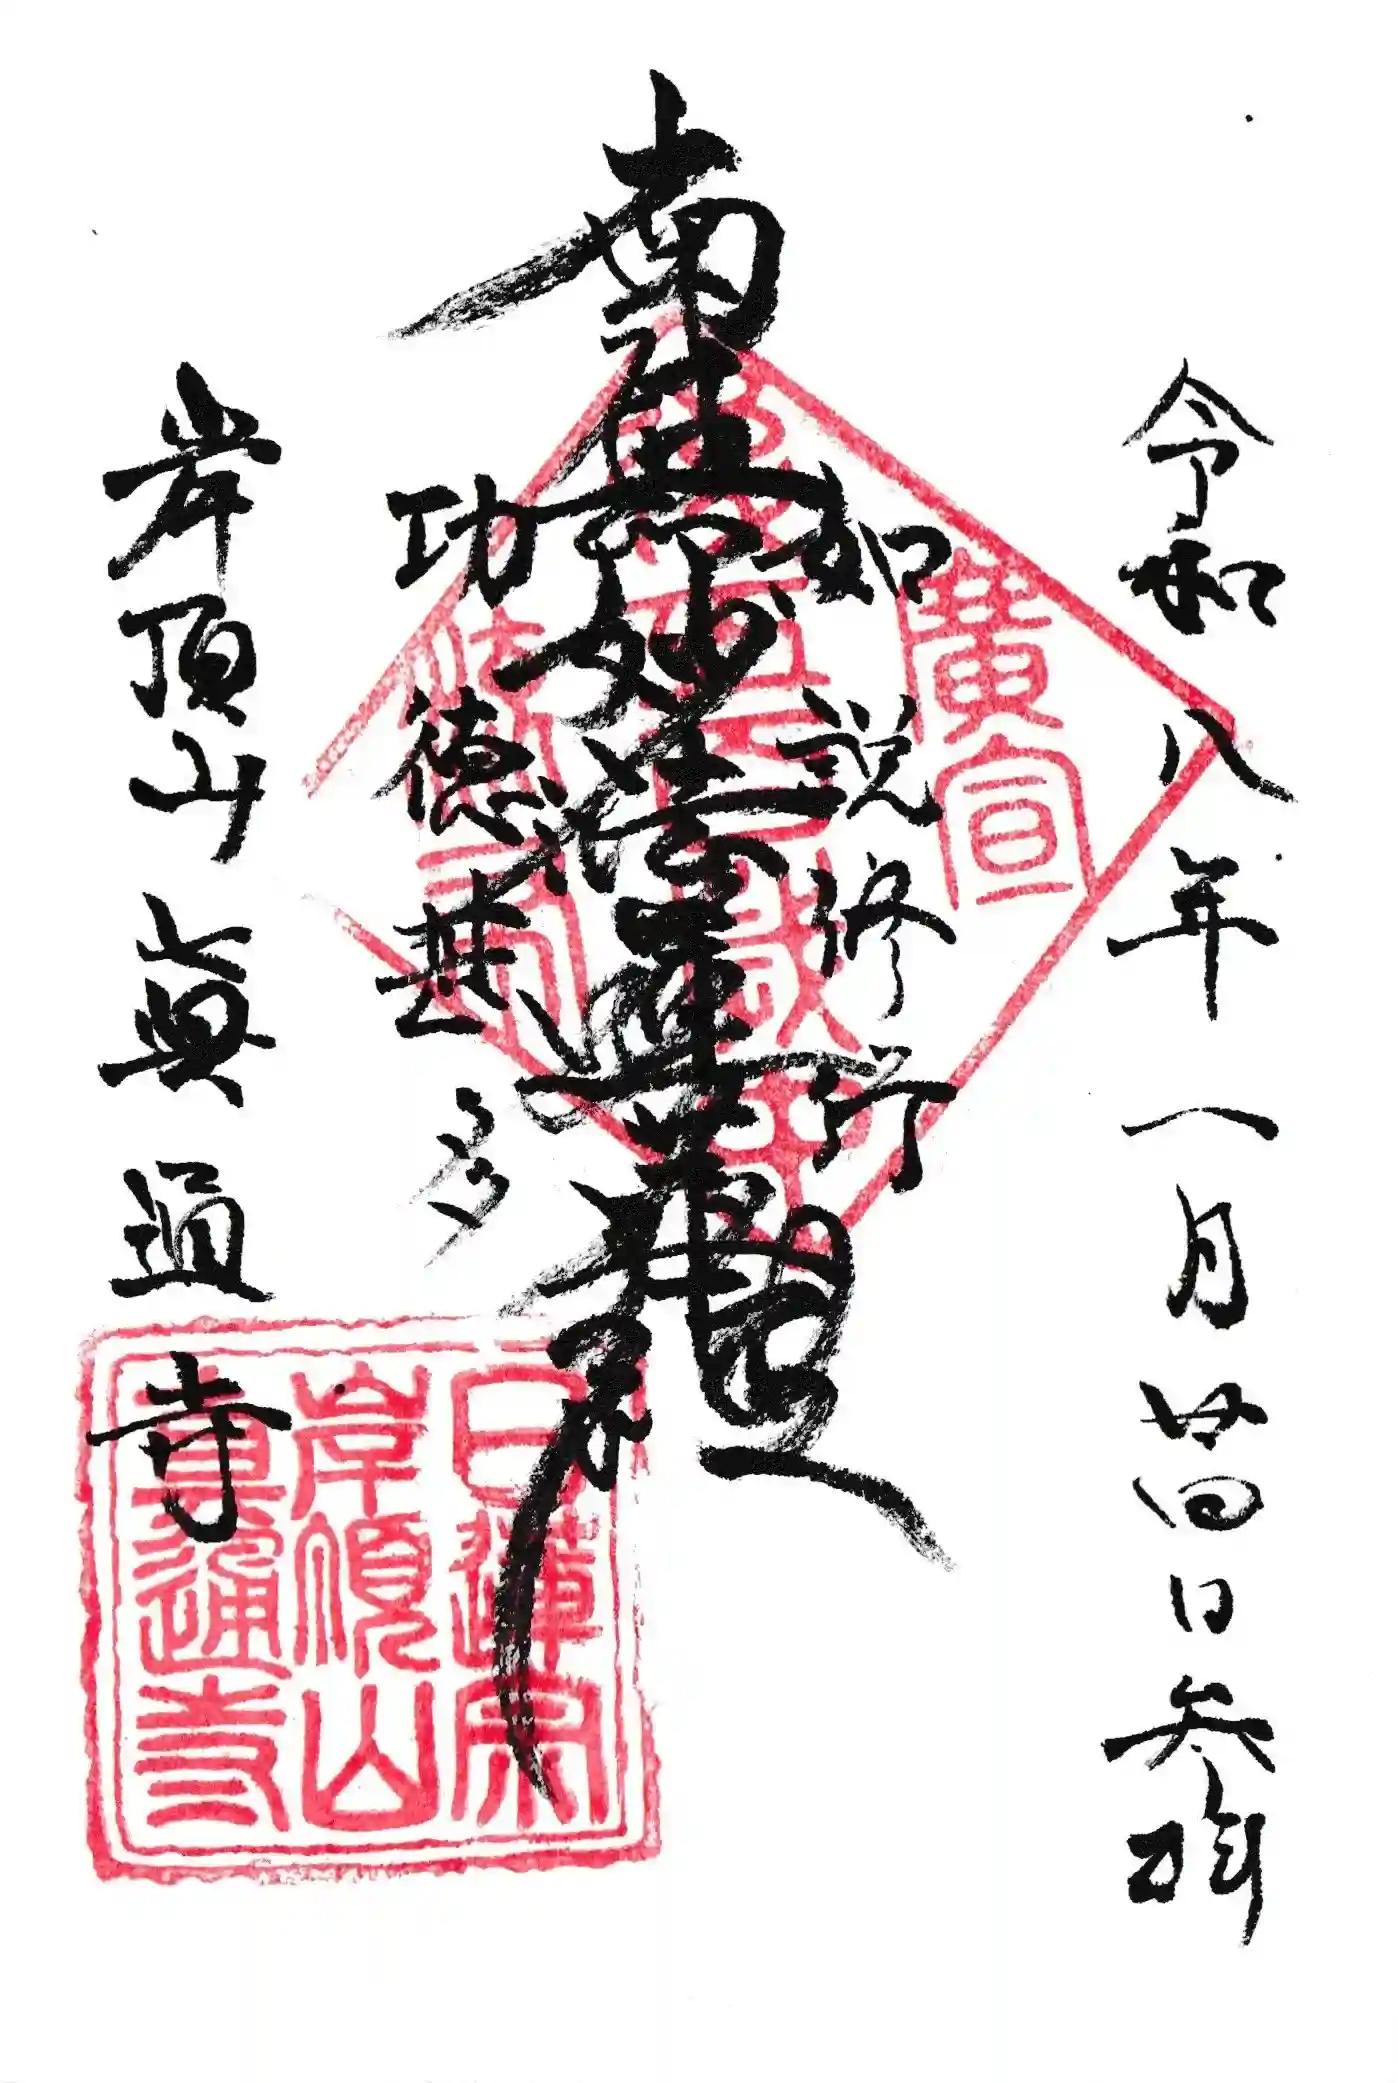 令和八年一月廿四日参拝
如説修行
南無妙法蓮華経
功徳甚多
岸頂山真通寺
廣宣
日蓮宗
岸頂山
真通寺